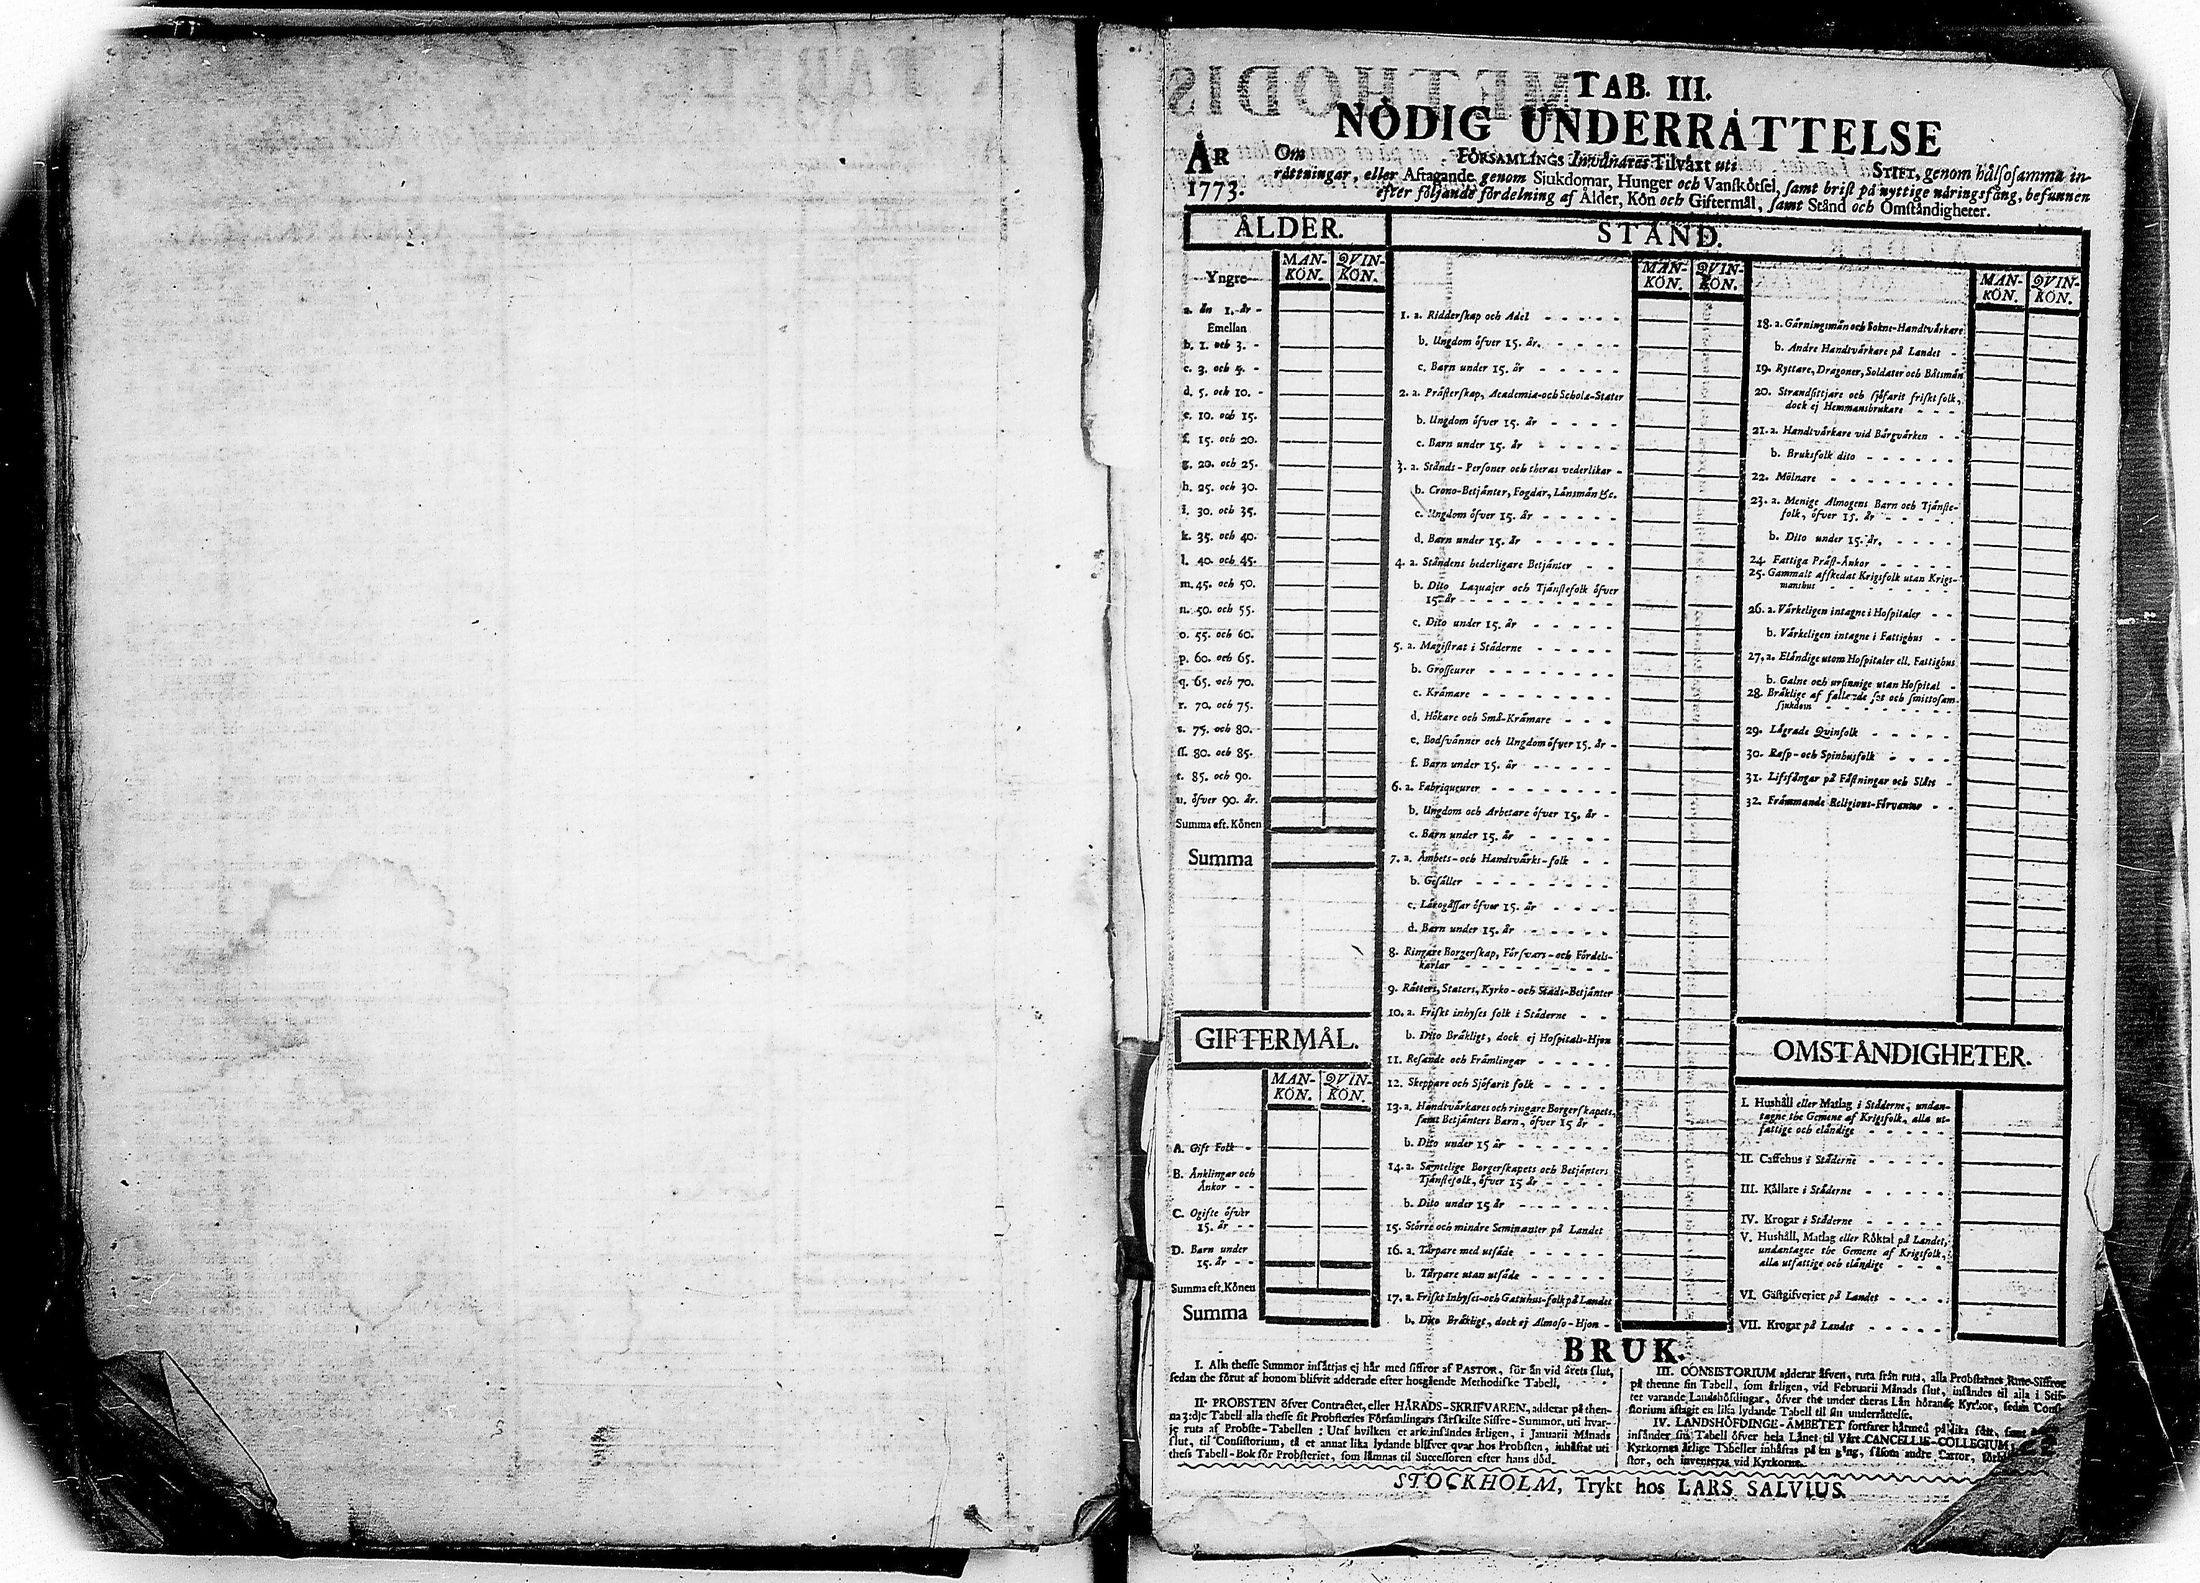 TAB. III.
NÖDIG UNDERRÄTTELSE
ÅR 1773.
Om FÖRSAMLINGS Invånares Tilväxt uti STIFT, genom hälsosamma in-
rättningar, eller Aftagande genom Sjukdomar, Hunger och Vanskötsel, samt brist på nyttige näringsfång, befunnen
efter följande fördelning af Ålder, Kön och Giftermål, samt Stånd och Omständigheter.
ÅLDER.
MAN-KÖN. QVIN-KÖN.
Yngre
a. än 1. år -
Emellan
b. 1. och 3. -
c. 3. och 5. -
d. 5. och 10. -
e. 10. och 15.
f. 15. och 20.
g. 20. och 25.
h. 25. och 30.
i. 30. och 35.
k. 35. och 40.
l. 40. och 45.
m. 45. och 50.
n. 50. och 55.
o. 55. och 60.
p. 60. och 65.
q. 65. och 70.
r. 70. och 75.
s. 75. och 80.
ss. 80. och 85.
t. 85. och 90.
u. öfver 90. år.
Summa eft. Könen
Summa
GIFTERMÅL.
MAN-KÖN. QVIN-KÖN.
A. Gift Folk -
B. Änklingar och
Änkor - -
C. Ogifte öfver
15. år - -
D. Barn under
15. år - -
Summa eft. Könen
Summa
STÅND.
MAN-KÖN. QVIN-KÖN.
1. a. Ridderskap och Adel
b. Ungdom öfver 15. år.
c. Barn under 15. år
2. a. Prästerskap, Academiæ-och Scholæ-Stater
b. Ungdom öfver 15. år
c. Barn under 15. år
3. a. Stånds-Personer och theras vederlikar -
b. Crono-Betjänter, Fogdar, Länsmän &c.
c. Ungdom öfver 15. år
d. Barn under 15. år
4. a. Ståndens hederligare Betjänter
b. Dito Laquajer och Tjänstefolk öfver
15. år
c. Dito under 15. år
5. a. Magistrat i Städerne
b. Grosseurer
c. Krämare
d. Hökare och Små-Krämare
e. Bodsvänner och Ungdom öfver 15. år -
f. Barn under 15. år
6. a. Fabriqueurer
b. Ungdom och Arbetare öfver 15. år -
c. Barn under 15. år
7. a. Ämbets-och Handtvärks-folk
b. Gesäller
c. Lärogässar öfver 15. år
d. Barn under 15. år
8. Ringare Borgerskap, Försvars-och Fördels-
karlar
9. Rätters, Staters, Kyrko-och Stads-Betjänter
10. a. Friskt inhyses folk i Städerne
b. Dito Bräkligt, dock ej Hospitals-Hjon
11. Resande och Främlingar
12. Skeppare och Sjöfarit folk
13. a. Handtvärkares och ringare Borgerskapets,
samt Betjänters Barn, öfver 15 år -
b. Dito under 15 år
14. a. Samtelige Borgerskapets och Betjänters
Tjänstefolk, öfver 15 år
b. Dito under 15 år
15. Större och mindre Seminanter på Landet
16. a. Tårpare med utsäde
b. Tårpare utan utsäde
17. a. Friskt Inhyses-och Gatuhus-folk på Landet
b. Dito Bräkligt, dock ej Almoso-Hjon -
MAN-KÖN. QVIN-KÖN.
18. a. Gärningsmän och Sokne-Handtvärkare
b. Andre Handtvärkare på Landet -
19. Ryttare, Dragoner, Soldater och Båtsmän
20. Strandsittjare och sjöfarit friskt folk,
dock ej Hemmansbrukare
21. a. Handtvärkare vid Bärgvärken
b. Bruksfolk dito
22. Mölnare
23. a. Menige Almogens Barn och Tjänste-
folk, öfver 15. år
b. Dito under 15. år.
24. Fattiga Präst-Änkor
25. Gammalt afskedat Krigsfolk utan Krigs-
manshus
26. a. Värkeligen intagne i Hospitaler
b. Värkeligen intagne i Fattighus
27. a. Eländige utom Hospitaler ell. Fattighus
b. Galne och ursinnige utan Hospital -
28. Bräklige af fallande sot och smittosam
sjukdom
29. Lägrade Qvinfolk
30. Rasp-och Spinhusfolk
31. Lifsfångar på Fästningar och Slått
32. Främmande Religions-Förvanter
OMSTÄNDIGHETER.
I. Hushåll eller Matlag i Städerne, undan-
tagne the Gemene af Krigsfolk, alla ut-
fattige och eländige
II. Caffehus i Städerne
III. Källare i Städerne
IV. Krogar i Städerne
V. Hushåll, Matlag eller Röktal på Landet,
undantagne the Gemene af Krigsfolk,
alla utfattige och eländige
VI. Gästgifverier på Landet
VII. Krogar på Landet
BRUK.
I. Alla thesse Summor insättjas ej här med siffror af PASTOR, för än vid årets slut,
sedan the förut af honom blifvit adderade efter hosgående Methodiske Tabell.
II. PROBSTEN öfver Contractet, eller HÄRADS-SKRIFVAREN, adderar på then-
na 3:dje Tabell alla thesse sit Probsteries Församlingars särskilte Siffre-Summor, uti hvar-
je ruta af Probste-Tabellen: Utaf hvilken et ark insändes årligen, i Januarii Månads
slut, til Consistorium, tå et annat lika lydande blifver qvar hos Probsten, inhäftat uti
thess Tabell-Bok för Probsteriet, som lämnas til Successoren efter hans död.
III. CONSISTORIUM adderar äfven, ruta från ruta, alla Probstarnes Rute-Siffror
på thenne sin Tabell, som årligen, vid Februarii Månads slut, insändes til alla i Stif-
tet varande Landshöfdingar, öfver the under theras Län hörande Kyrkor, sedan Consi-
storium aftagit en lika lydande Tabell til sin underrättelse.
IV. LANDSHÖFDINGE-ÄMBETET fortfarer härmed på lika sätt, samt
insänder sin Tabell öfver hela Länet til Vårt CANCELLIE-COLLEGIUM
Kyrkornes årlige Tabeller inhäftas på en gång, såsom andre Cartor,
stor, och inventeras vid Kyrkorne.
STOCKHOLM, Trykt hos LARS SALVIUS.